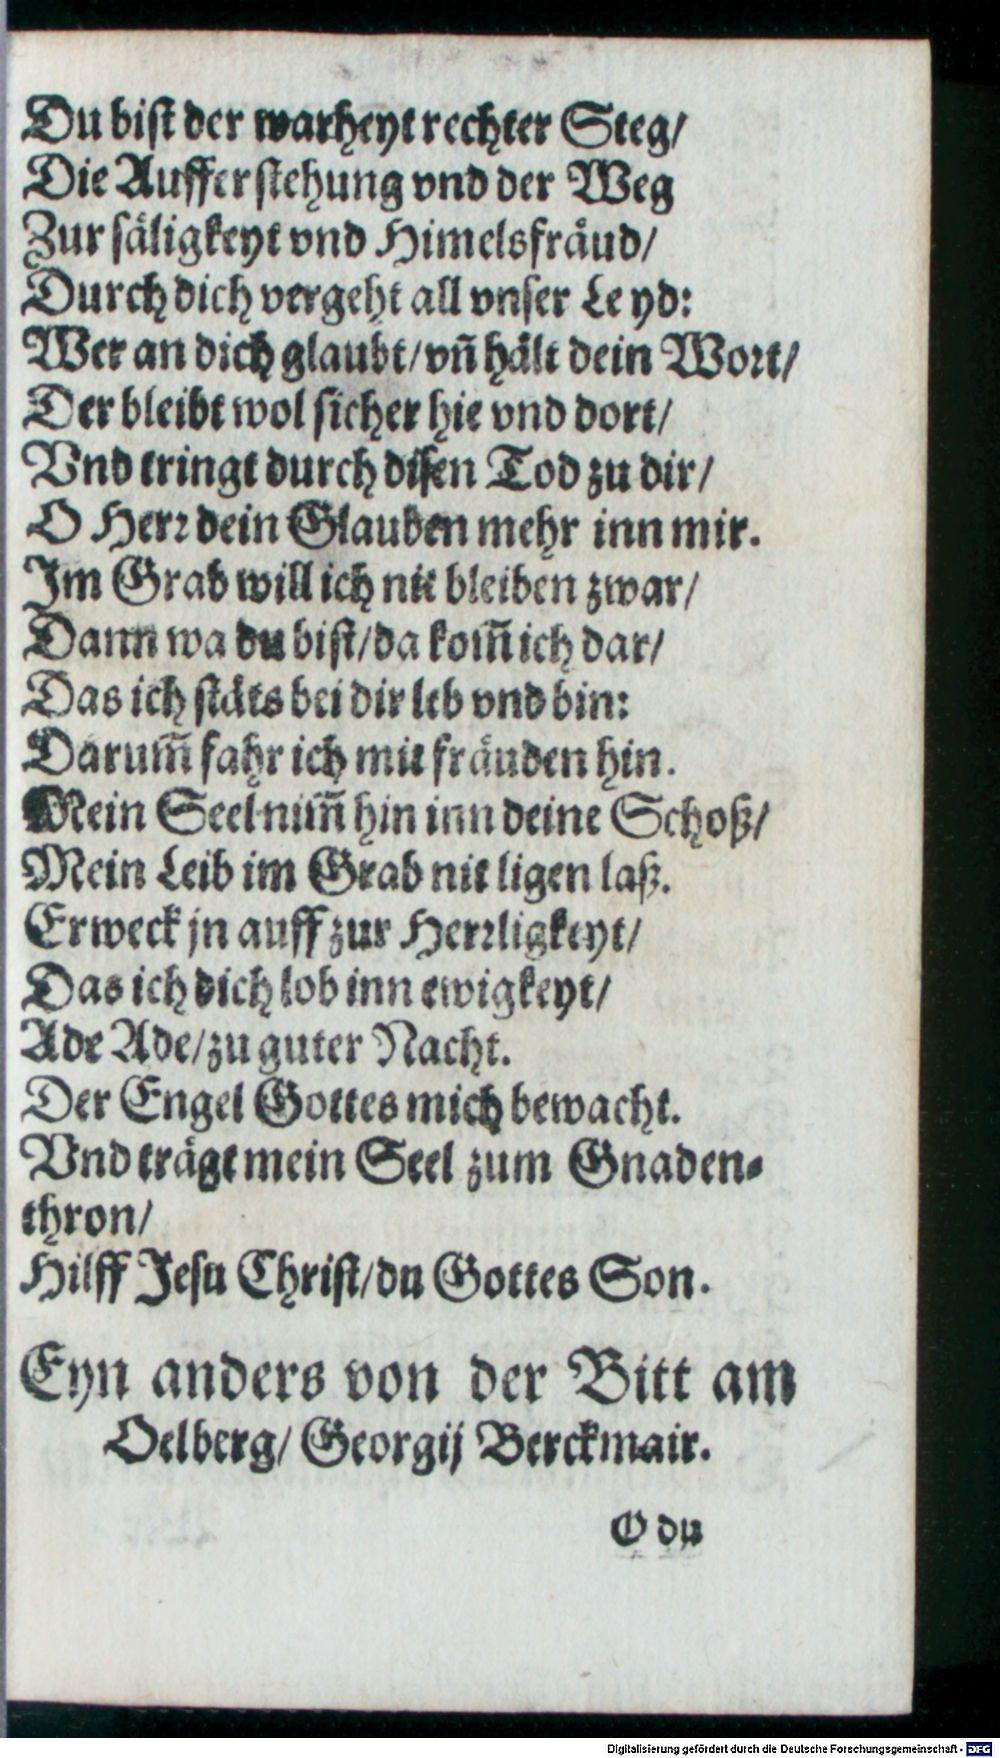 Du bist der warheyt rechter Steg/
Die Aufferstehung vnd der Weg
Zur säligkeyt vnd Himelsfräud/
Durch dich vergeht all vnser Leyd:
Wer an dich glaubt/vñ hält dein Wort/
Der bleibt wol sicher hie vnd dort/
Vnd tringt durch disen Tod zu dir/
O Herr dein Glauben mehr inn mir.
Im Grab will ich nit bleiben zwar/
Dann wa du bist/da kom̃ ich dar/
Das ich stäts bei dir leb vnd bin:
Darum̃ fahr ich mit fräuden hin.
Mein Seel nim̃ hin inn deine Schoß/
Mein Leib im Grab nit ligen laß.
Erweck jn auff zur Herrligkeyt/
Das ich dich lob inn ewigkeyt/
Ade Ade/zu guter Nacht.
Der Engel Gottes mich bewacht.
Vnd trägt mein Seel zum Gnaden-
thron/
Hilff Jesu Christ/du Gottes Son.
Eyn anders von der Bitt am
Oelberg/ Georgij Berckmair.
O du
Digitalisierung gefördert durch die Deutsche Forschungsgemeinschaft - DFG